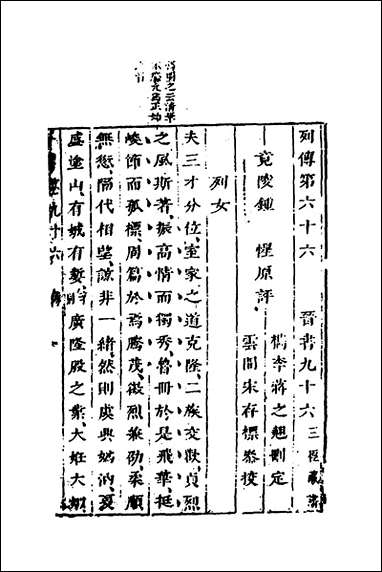 列傳第六十六　晉書九十六
竟陵鍾　惺原評
檇李蔣之翹刪定
雲間朱存標參挍
列女
夫三才分位、室家之道克隆、二族交歡、貞烈
之風斯著、振高情而獨秀、魯冊於是飛華、挺
峻節而孤標、周篇於焉騰茂、徽烈兼劭、柔順
無愆、隔代相望、諒非一緒、然則虞興媯汭、夏
盛塗山、有娀有㜪、廣隆殷之業、大姙大姒